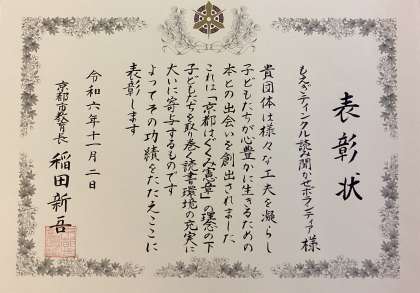 表彰状
もえぎティンクル読み聞かせボランティア様
貴団体は様々な工夫を凝らし
子どもたちが心豊かに生きるための
本との出会いを創出されました
これは「京都はぐくみ憲章」の理念の下
子どもたちを取り巻く読書環境の充実に
大いに寄与するものです
よってその功績をたたえここに
表彰します
令和六年十一月二日
京都市教育長 稲田新吾